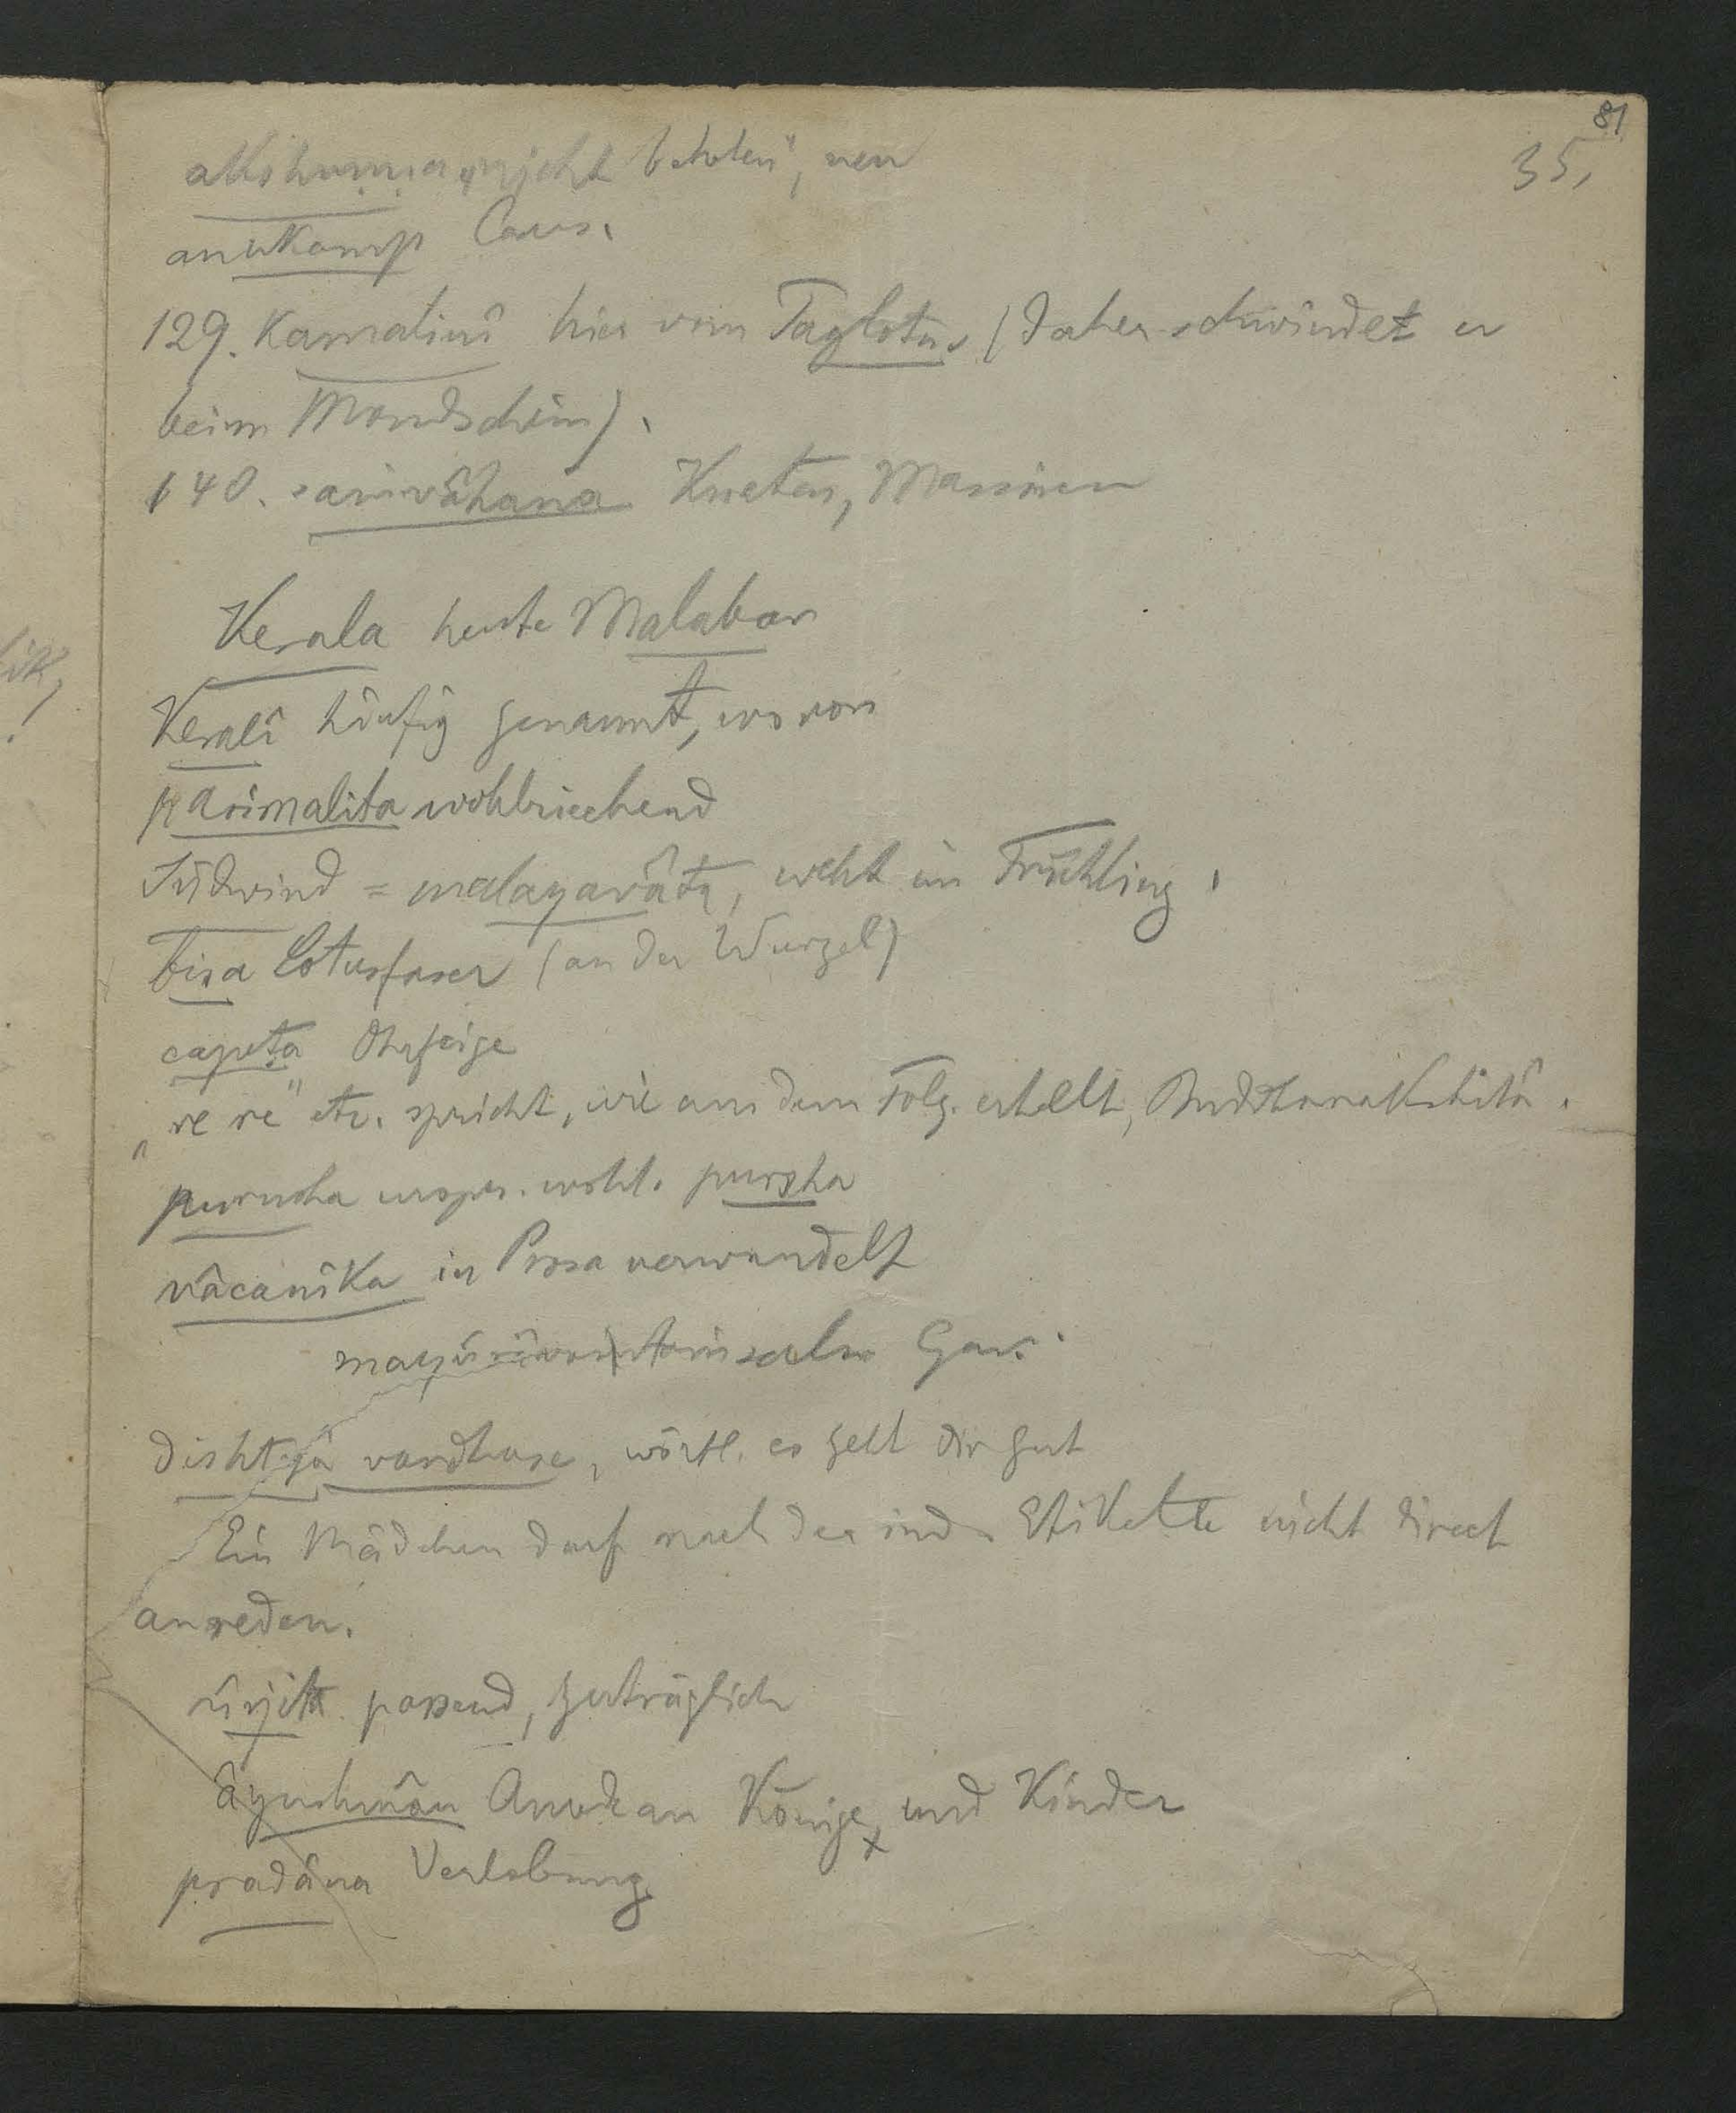 81
35,
akshuṇṇa „nicht betreten", neu
anukamp Caus.
129. Kamalinî hier vom Taglotus (daher schwindet er
beim Mondschein).
140. saṁvâhana Kneten, Massiren
Kerala heute Malabar
Keralî häufig genannt, wovon
parimalita wohlriechend
Südwind = malayavâta, weht im Frühling.
bisa Lotusfaser (an der Wurzel)
capeṭa Ohrfeige
„re re" etc. spricht, wie aus dem Folg. erhellt, Buddharakshitâ.
purusha urspr. wohl. pursha
vâcanika in Prosa verwandelt
Gaṇ.
dishṭyâ vardhase, wörtl. es geht dir gut
Ein Mädchen darf nach der ind. Etikette nicht direct
anreden.
ûrjita passend, zuträglich
âyushmân Anrede an Könige, und Kinder
pradâna Verlobung